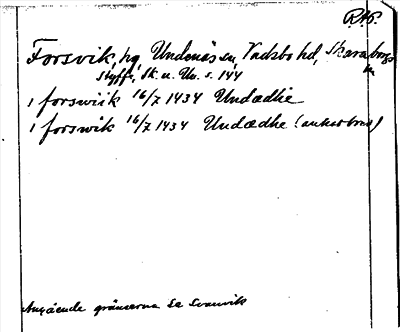 RAP.
Forsvik, hg, Undenäs sn, Vadsbo hd, Skaraborgs
Styffe, Sk. u. Un. s. 144
i forswiik 16/7 1434 Undædhe
i forswik 16/7 1434 Undædhe
Angående gränserna se Svanvik